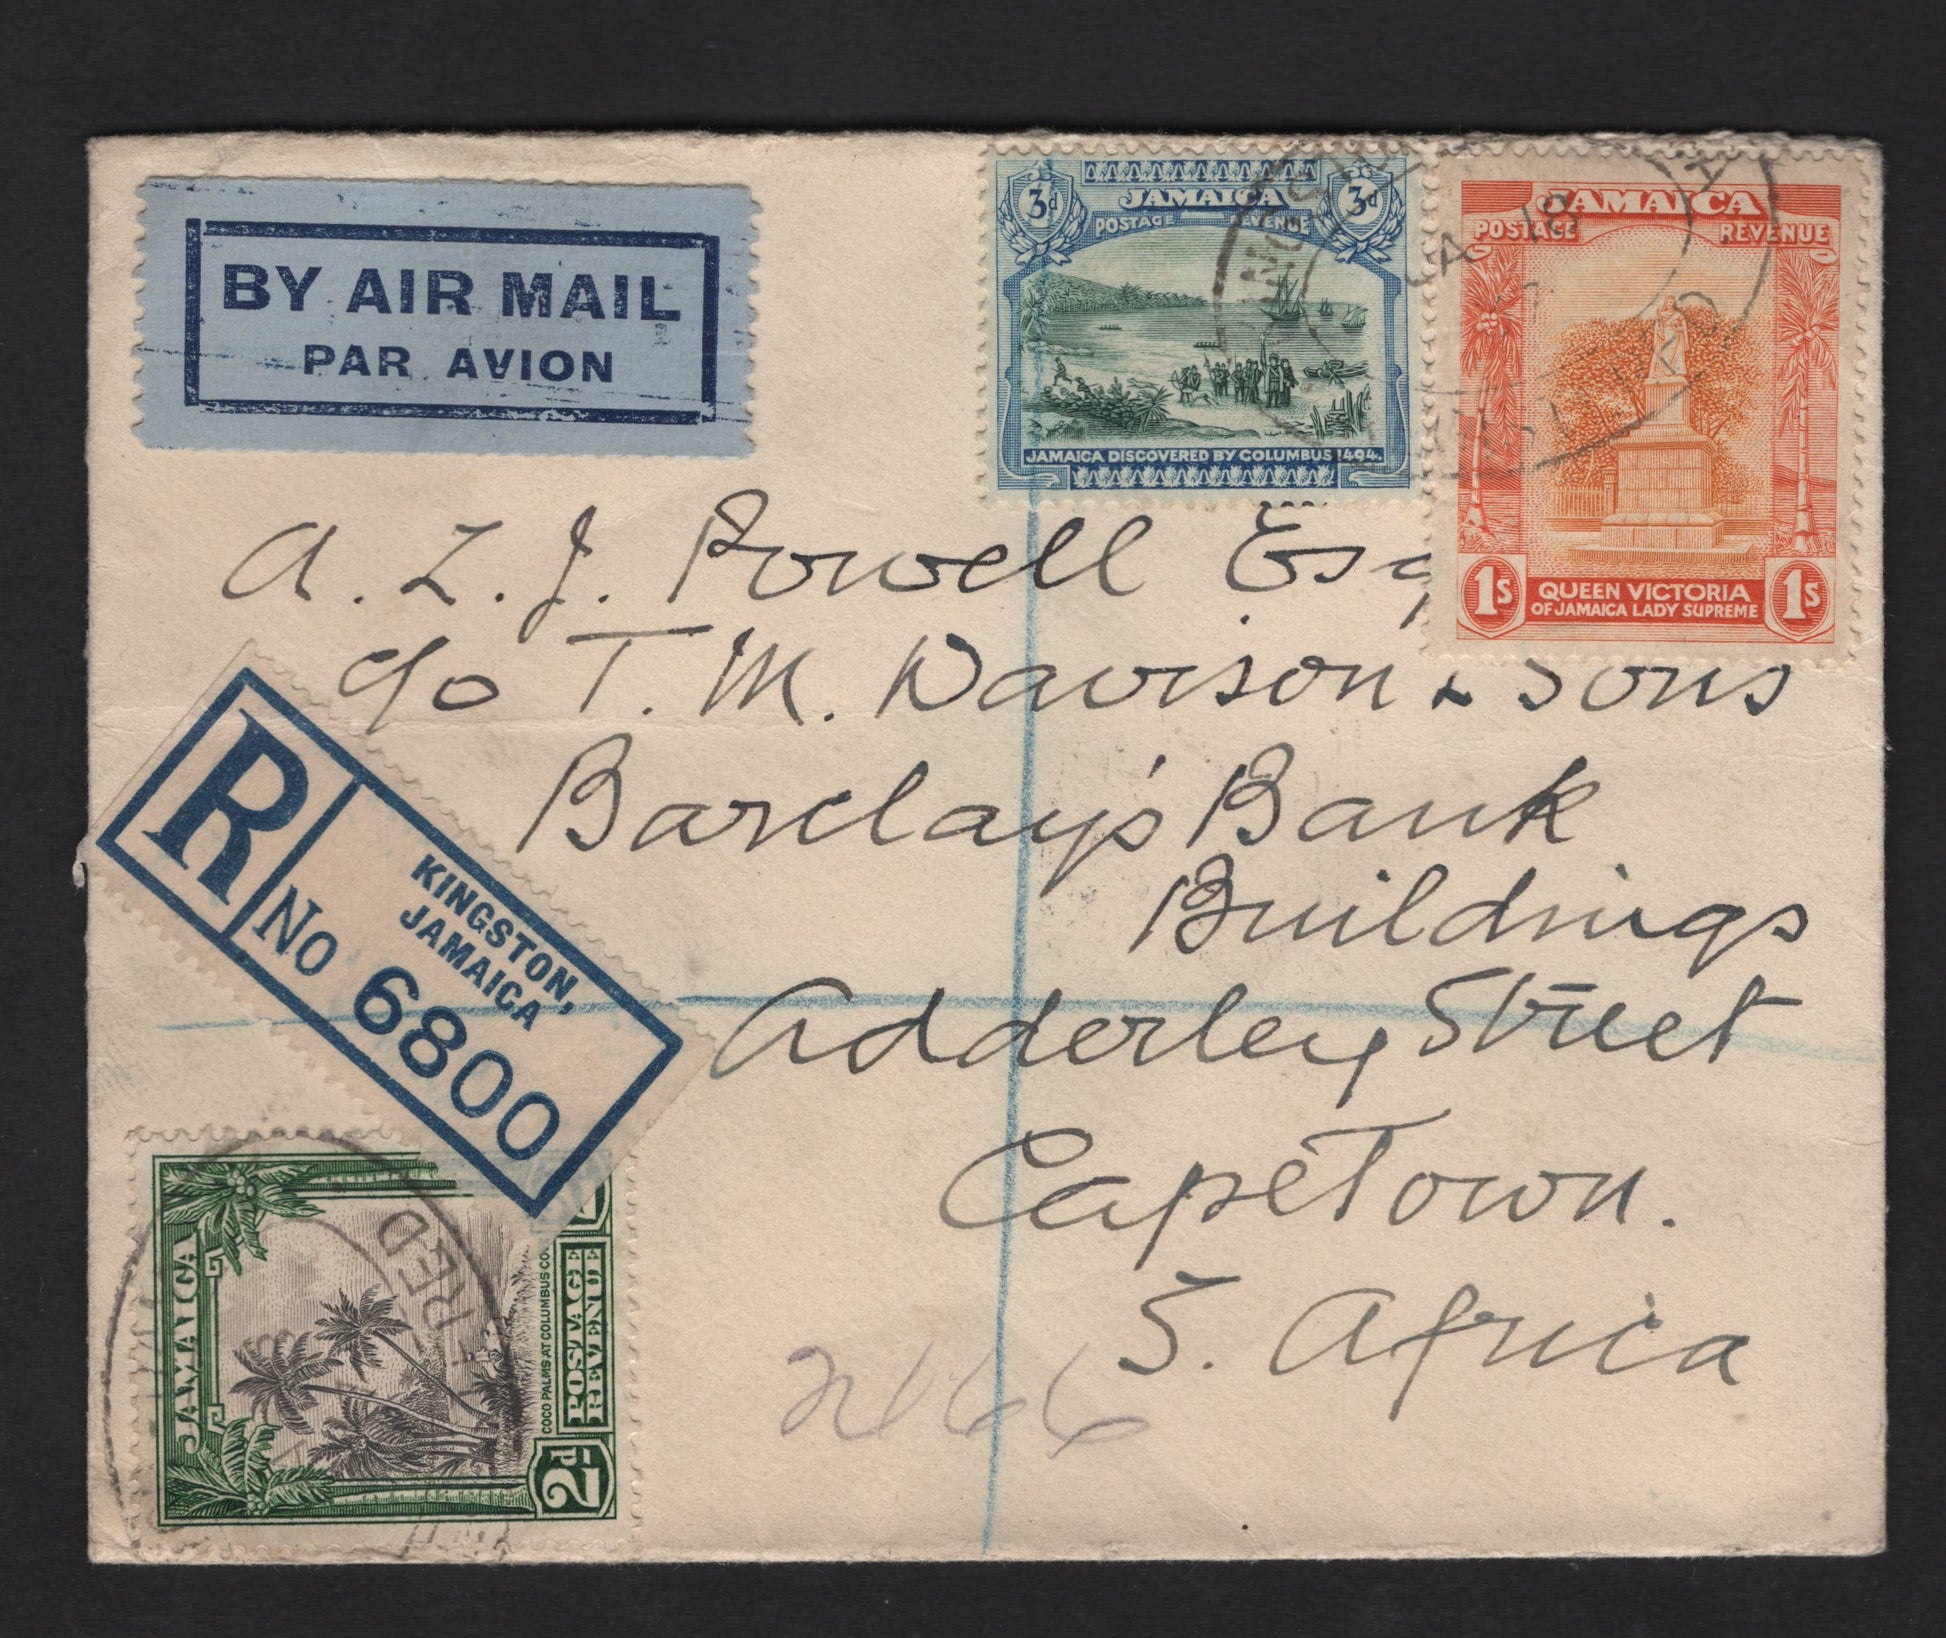 BY AIR MAIL
PAR AVION
3d JAMAICA 3d
POSTAGE REVENUE
JAMAICA DISCOVERED BY COLUMBUS 1494.
JAMAICA
POSTAGE REVENUE
1s QUEEN VICTORIA 1s
OF JAMAICA LADY SUPREME
18
A. L. J. Powell Esq
c/o T. M. Davison & Sons
Barclay's Bank
Buildings
Adderley Street
CapeTown.
S. Africa
R
No 6800
KINGSTON,
JAMAICA
JAMAICA
COCO PALMS AT COLUMBUS CO
POSTAGE
REVENUE
2d
RED